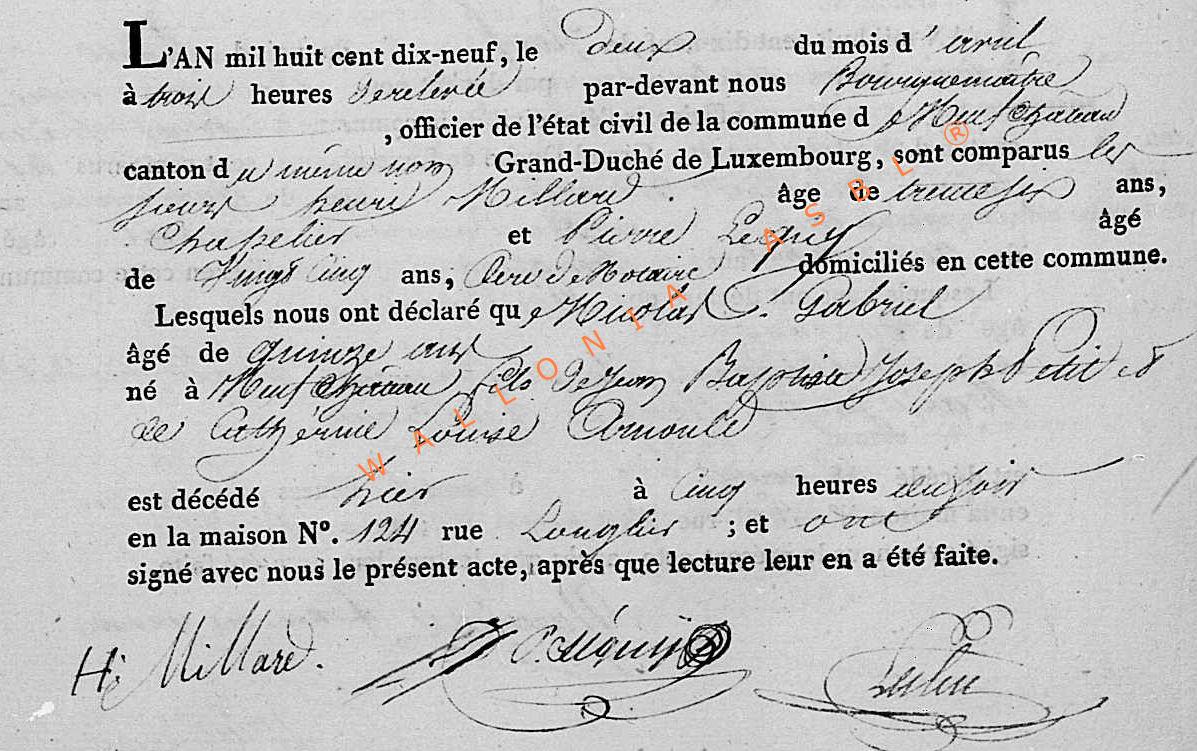 L'AN mil huit cent dix-neuf, le deux du mois d'avril
à trois heures de relevée par-devant nous Bourguemaitre
, officier de l'état civil de la commune de Neufchateau
canton du même nom Grand-Duché de Luxembourg, sont comparus les
sieurs henri Millard âge de trente six ans,
Chapelier et Pierre âgé
de Vingt cinq ans, Clerc de Notaire domiciliés en cette commune.
Lesquels nous ont déclaré que Nicolas Gabriel
âgé de quinze ans
né à Neufchateau fils de Jean Baptiste Joseph Petit et
de Cathérine Louise Arnould
est décédé hier à cinq heures du soir
en la maison N°. 124 rue Longlier ; et ont
signé avec nous le présent acte, après que lecture leur en a été faite.
H. Millard.
WALLONIA ASBL ®